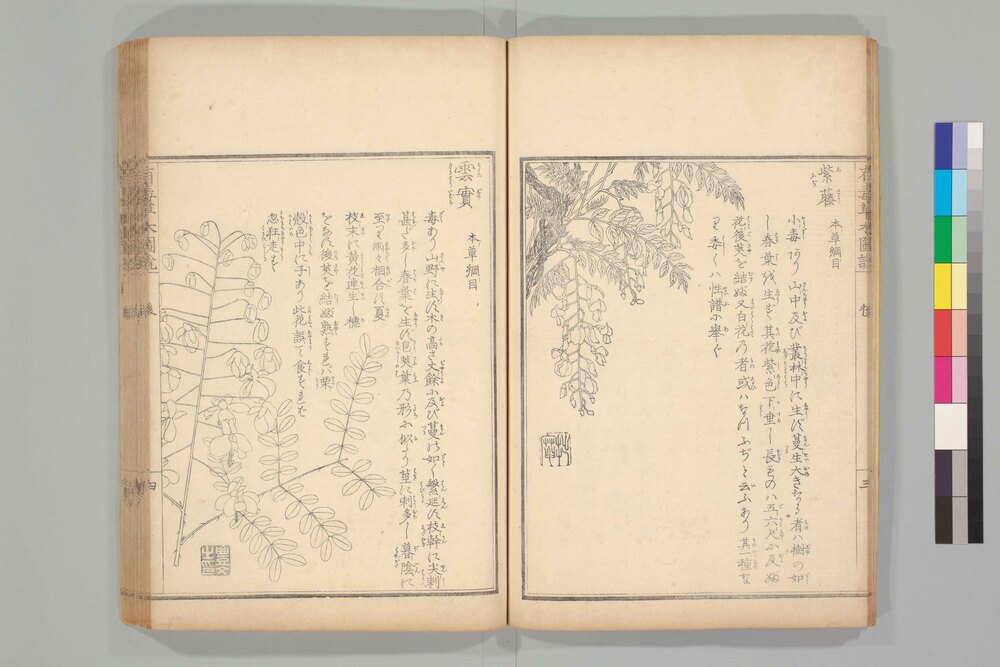 紫藤
ふぢ
本草綱目
小毒あり山中及び叢林中に生ず蔓生大きなる者ハ樹の如
し春葉を生ず其花紫色下垂し長きものハ五六尺に及ぶ
花後莢を結ぶ又白花の者或ハ ふぢと云ふあり其一種
委しくハ性譜に挙ぐ
後
三
雲實
本草綱目
毒あり山野に生ず木の高さ丈餘に及び蔓の如く繁延す枝幹に尖刺
甚だ多し春葉を生ず皂莢葉の形に似たり莖に刺多し暮陰に
至り両々相合す夏
枝末に黄花連生し穂
をなす後莢を結ぶ熟すれバ栗
殻色中に子あり此花誤て食すれバ
忽狂走す
草木圖説
後
四